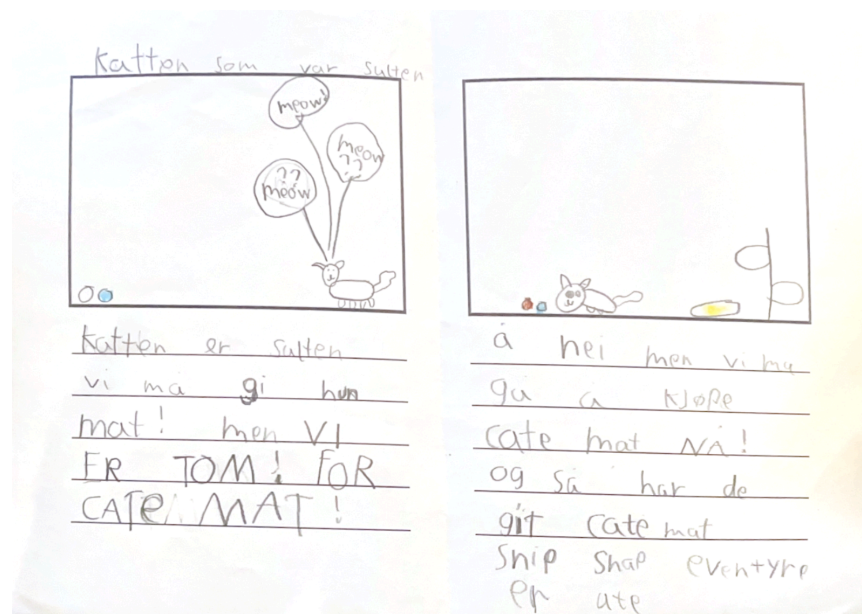 Katten som var sulten
meow!
meow
??
??
meow
Katten er sulten
vi må gi hun
mat! men VI
ER TOM! FOR
CATE MAT!
å hei men vi må
gå å kjøpe
cate mat NÅ!
og så har de
git cate mat
Snip Snap eventyre
er ute